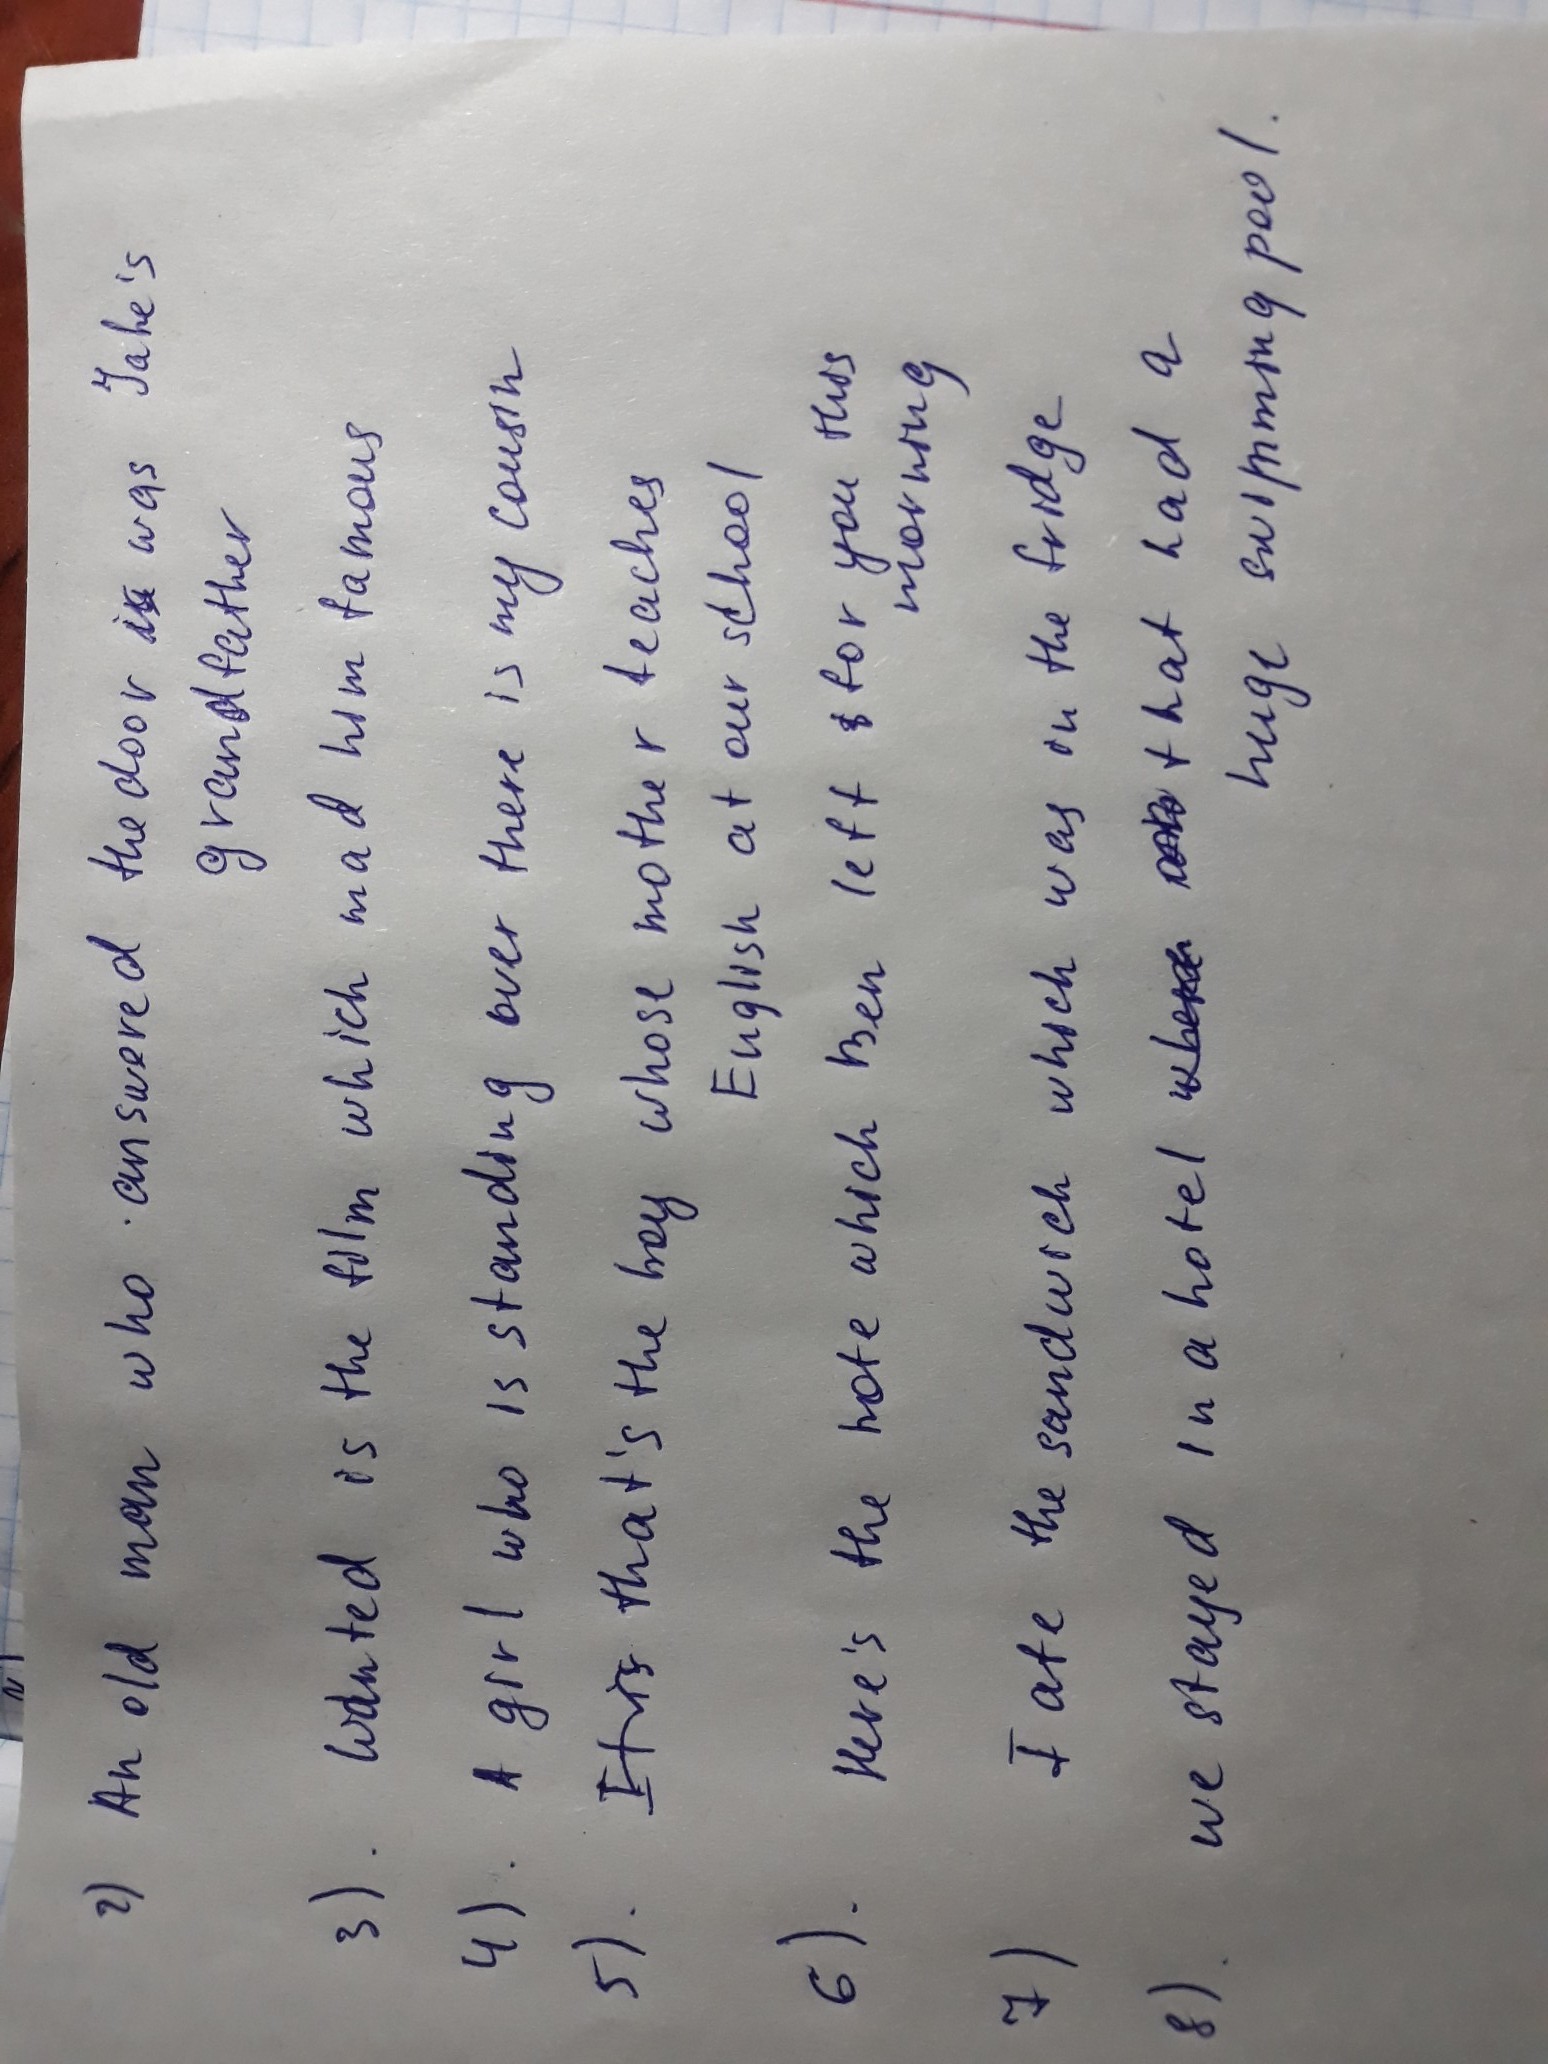 2) An old man who answered the door was Jane's
grandfather
3). Wanted is the film which mad him famous
4). A girl who is standing over there is my cousin
5). It is that's the boy whose mother teaches
English at our school
6). Here's the note which Ben left for you this
morning
7) I ate the sandwich which was in the fridge
8). we stayed in a hotel that had a
huge swimming pool.